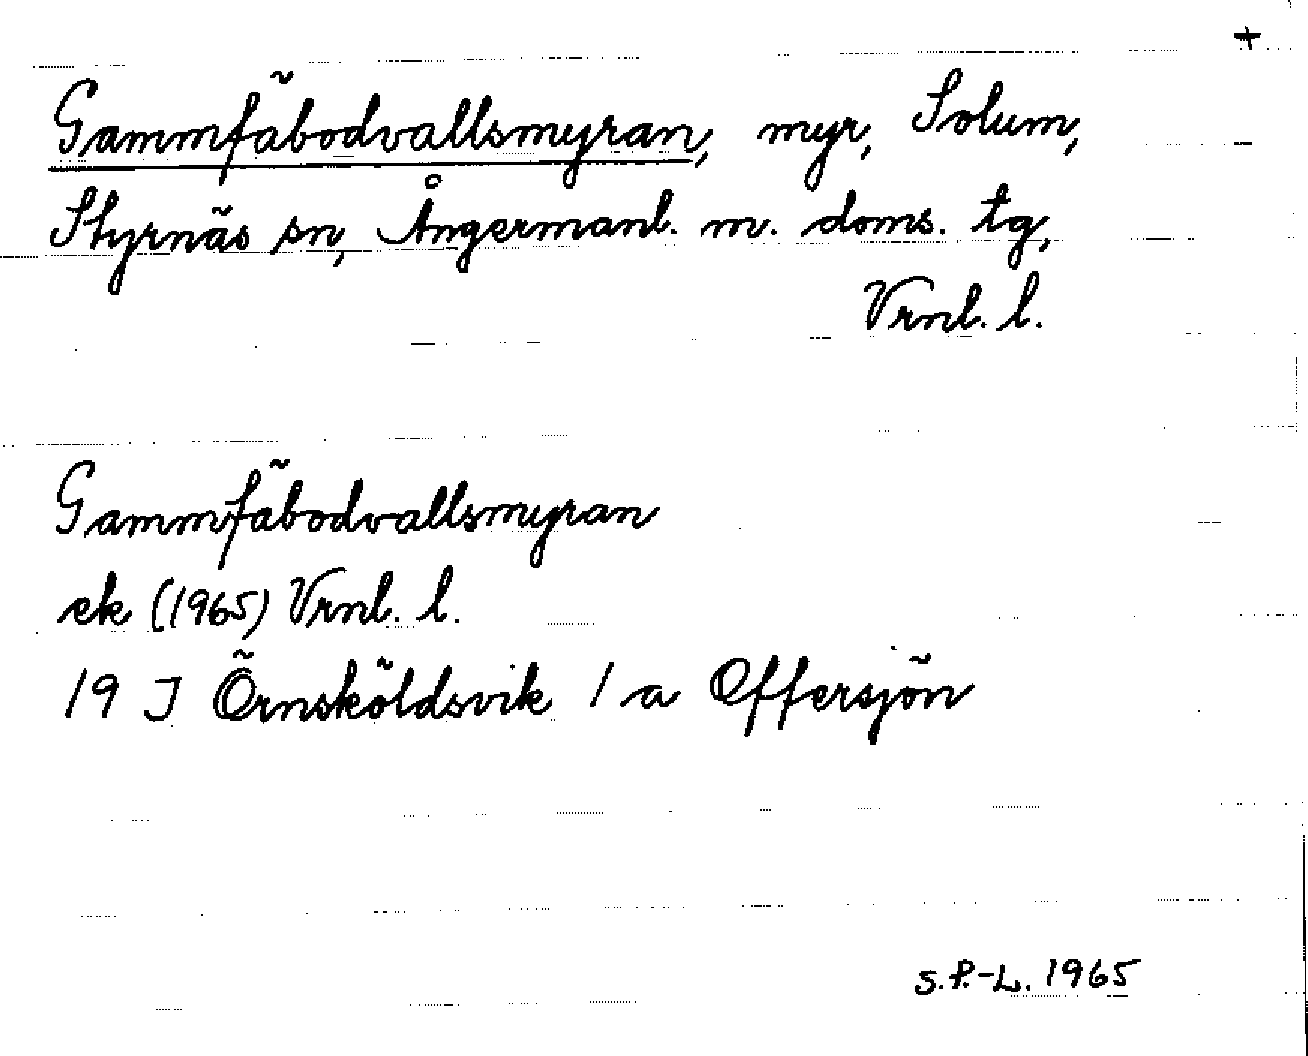 +
Gammfäbodvallsmyran, myr, Solum,
Styrnäs sn, Ångermanl. m. doms. tg,
Vrnl. l.
Gammfäbodvallsmyran
ek (1965) Vrnl. l.
19 J Örnsköldsvik 1 a Offersjön
S.P.-L. 1965